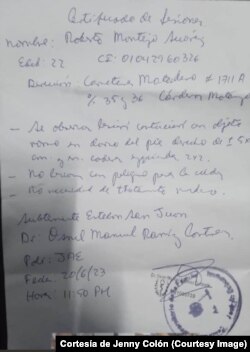 Certificado de Lesiones
Nombre: Roberto Montejo Suárez
Edad: 22 CI: 01042960326
Dirección: Carretera Matadero # 1711 A
% 35 y 36 Cárdenas
- Se observa lesión con objeto
romo en dorso del pie derecho de 1.5x
cm. y en cadera izquierda 2x2.
- No lesiones con peligro para la vida
- No necesidad de tratamiento médico.
Subteniente Esteban San Juan
Dr. Osniel Manuel Ramírez
Pdr: JPE
Fecha: 20/6/23
Hora: 11:50 PM
Cortesia de Jenny Colón (Courtesy Image)